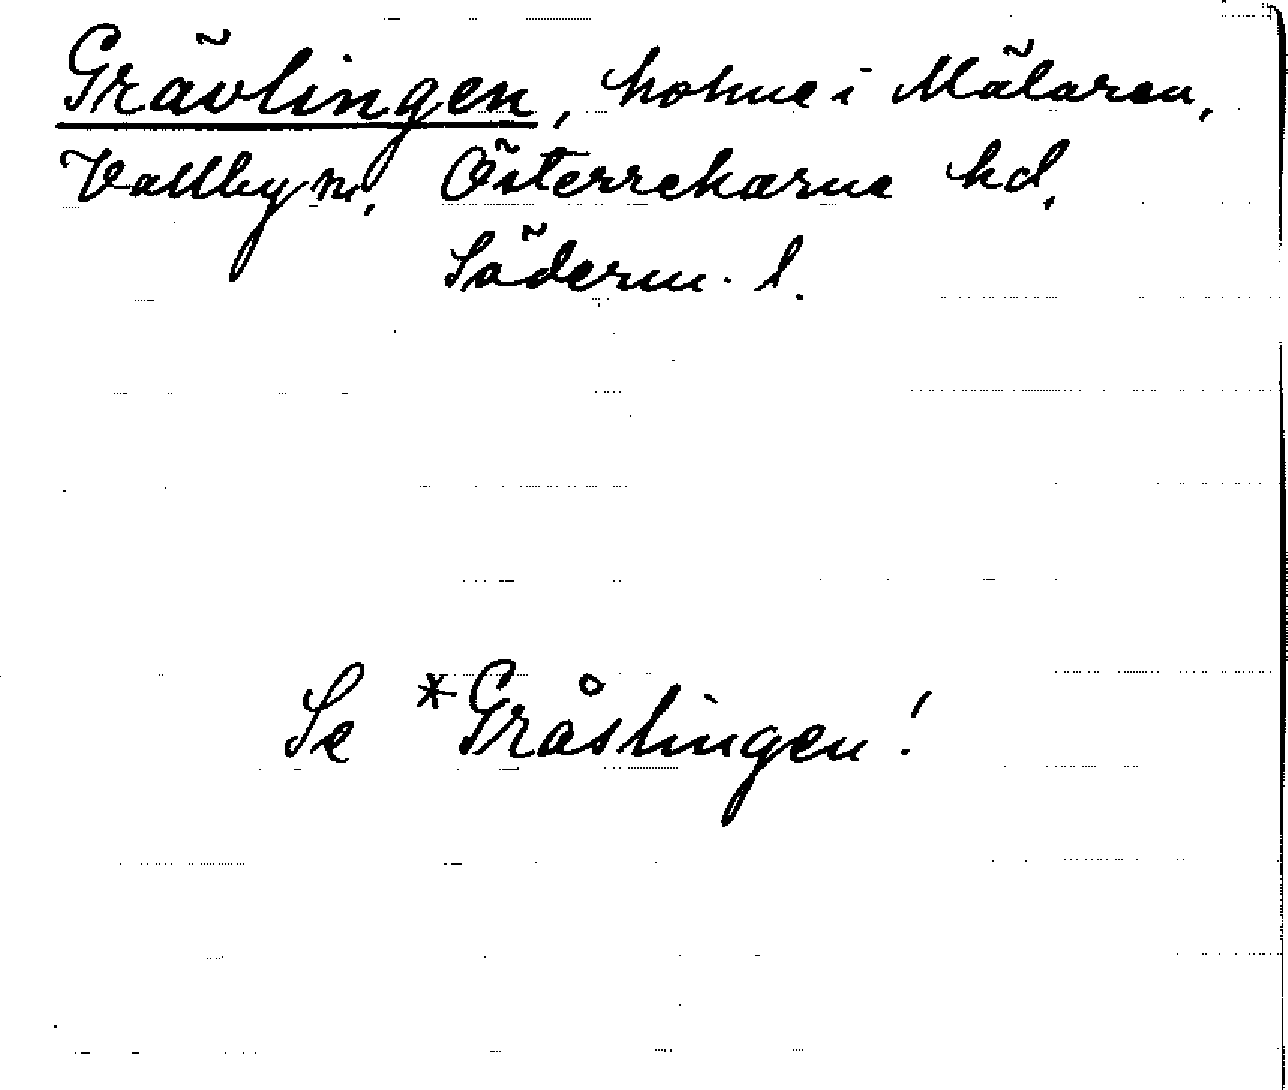 Grävlingen, holme i Mälaren,
Vallby sn, Österrekarne hd,
Söderm. l.
Se *Gråslingen!